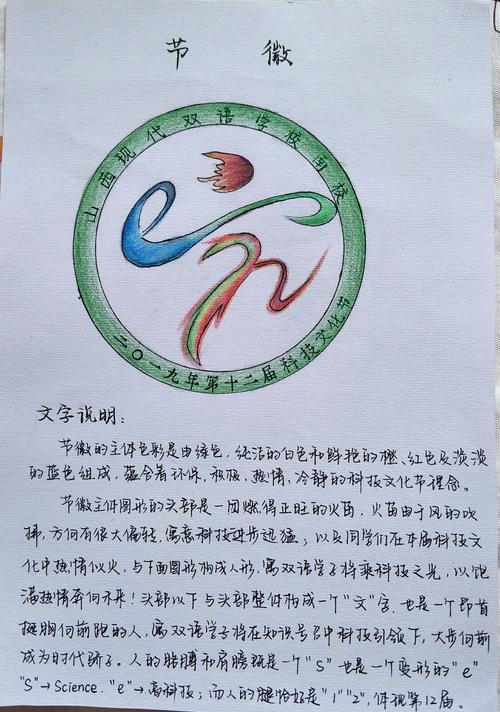 节 徽
山西现代双语学校南校
二〇一九年第十二届科技文化节
文字说明：
节徽的主体色彩是由绿色，纯洁的白色和鲜艳的橙、红色及淡淡
的蓝色组成，蕴含着环保，积极，热情，冷静的科技文化节理念。
节徽主体图形的头部是一团燃得正旺的火苗，火苗由于风的吹
拂，方向有很大偏转，寓意科技进步迅猛；以及同学们在本届科技文
化中热情似火，与下面图形构成人形，寓双语学子将乘科技之光，以饱
满热情奔向未来！头部以下与头部整体构成一个“文”字，也是一个昂首
挺胸向前跑的人，寓双语学子将在知识号召中科技引领下，大步向前
成为时代骄子。人的胳膊和肩膀既是一个“S”也是一个变形的“e”
“S”→Science．“e”→高科技；而人的腿恰好是“1”“2”，体现第12届。